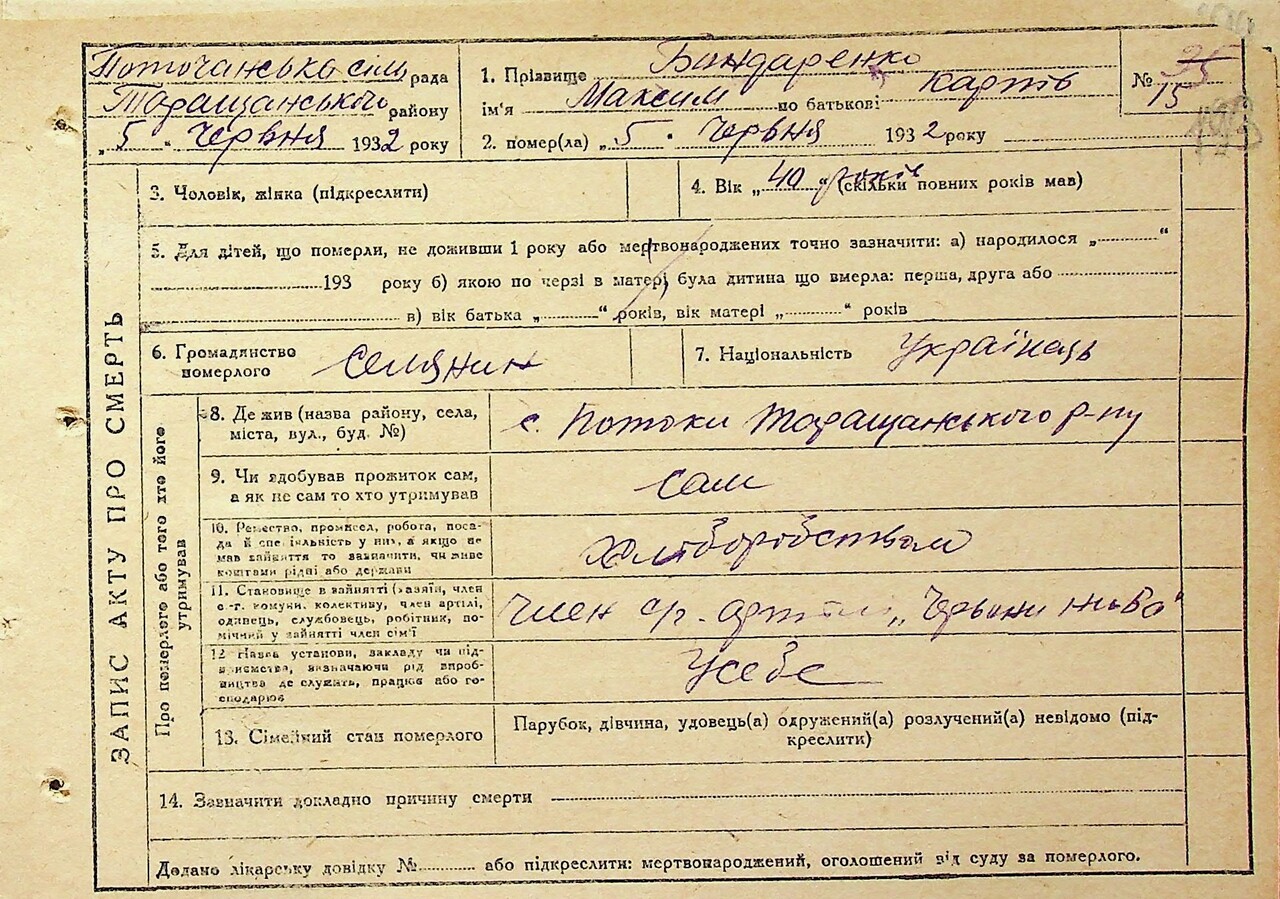 Поточанська сіль рада
Таращанського району
„5“ Червня 1932 року
1. Прізвище Бондаренко
ім'я Максим по батькові Карпів
2. помер(ла) „5“ Червня 1932 року
№ 35
15
ЗАПИС АКТУ ПРО СМЕРТЬ
3. Чоловік, жінка (підкреслити)
4. Вік „40“ років (скільки повних років мав)
5. Для дітей, що померли, не доживши 1 року або мертвонароджених точно зазначити: а) народилося „ “
193 року б) якою по черзі в матері була дитина що вмерла: перша, друга або
в) вік батька „ “ років, вік матері „ “ років
6. Громадянство
померлого
Селянин
7. Національність Українць
Про померлого або того хто його
утримував
8. Де жив (назва району, села,
міста, вул., буд. №)
с. Потоки Таращанського р-ну
9. Чи здобував прожиток сам,
а як не сам то хто утримував
сам
10. Ремество, промисел, робота, поса-
да й спеціяльність у них, а якщо не
мав зайняття то зазначити, чи живе
коштами рідні або держави
Хліборобством
11. Становище в зайнятті (хазяїн, член
с-г. комуни, колективу, член артілі,
одавець, службовець, робітник, по-
мічний у зайнятті член сім'ї
Член с/г. артілі „
12 Назва установи, закладу чи під-
приємства, вазначаючи рід вироб-
ництва де служить, працює або го-
сподарює
Усебе
13. Сімейний стан померлого
Парубок, дівчина, удовець(а) одружений(а) розлучений(а) невідомо (під-
креслити)
14. Зазначити докладно причину смерти
Додано лікарську довідку № або підкреслити: мертвонароджений, оголошений від суду за померлого.